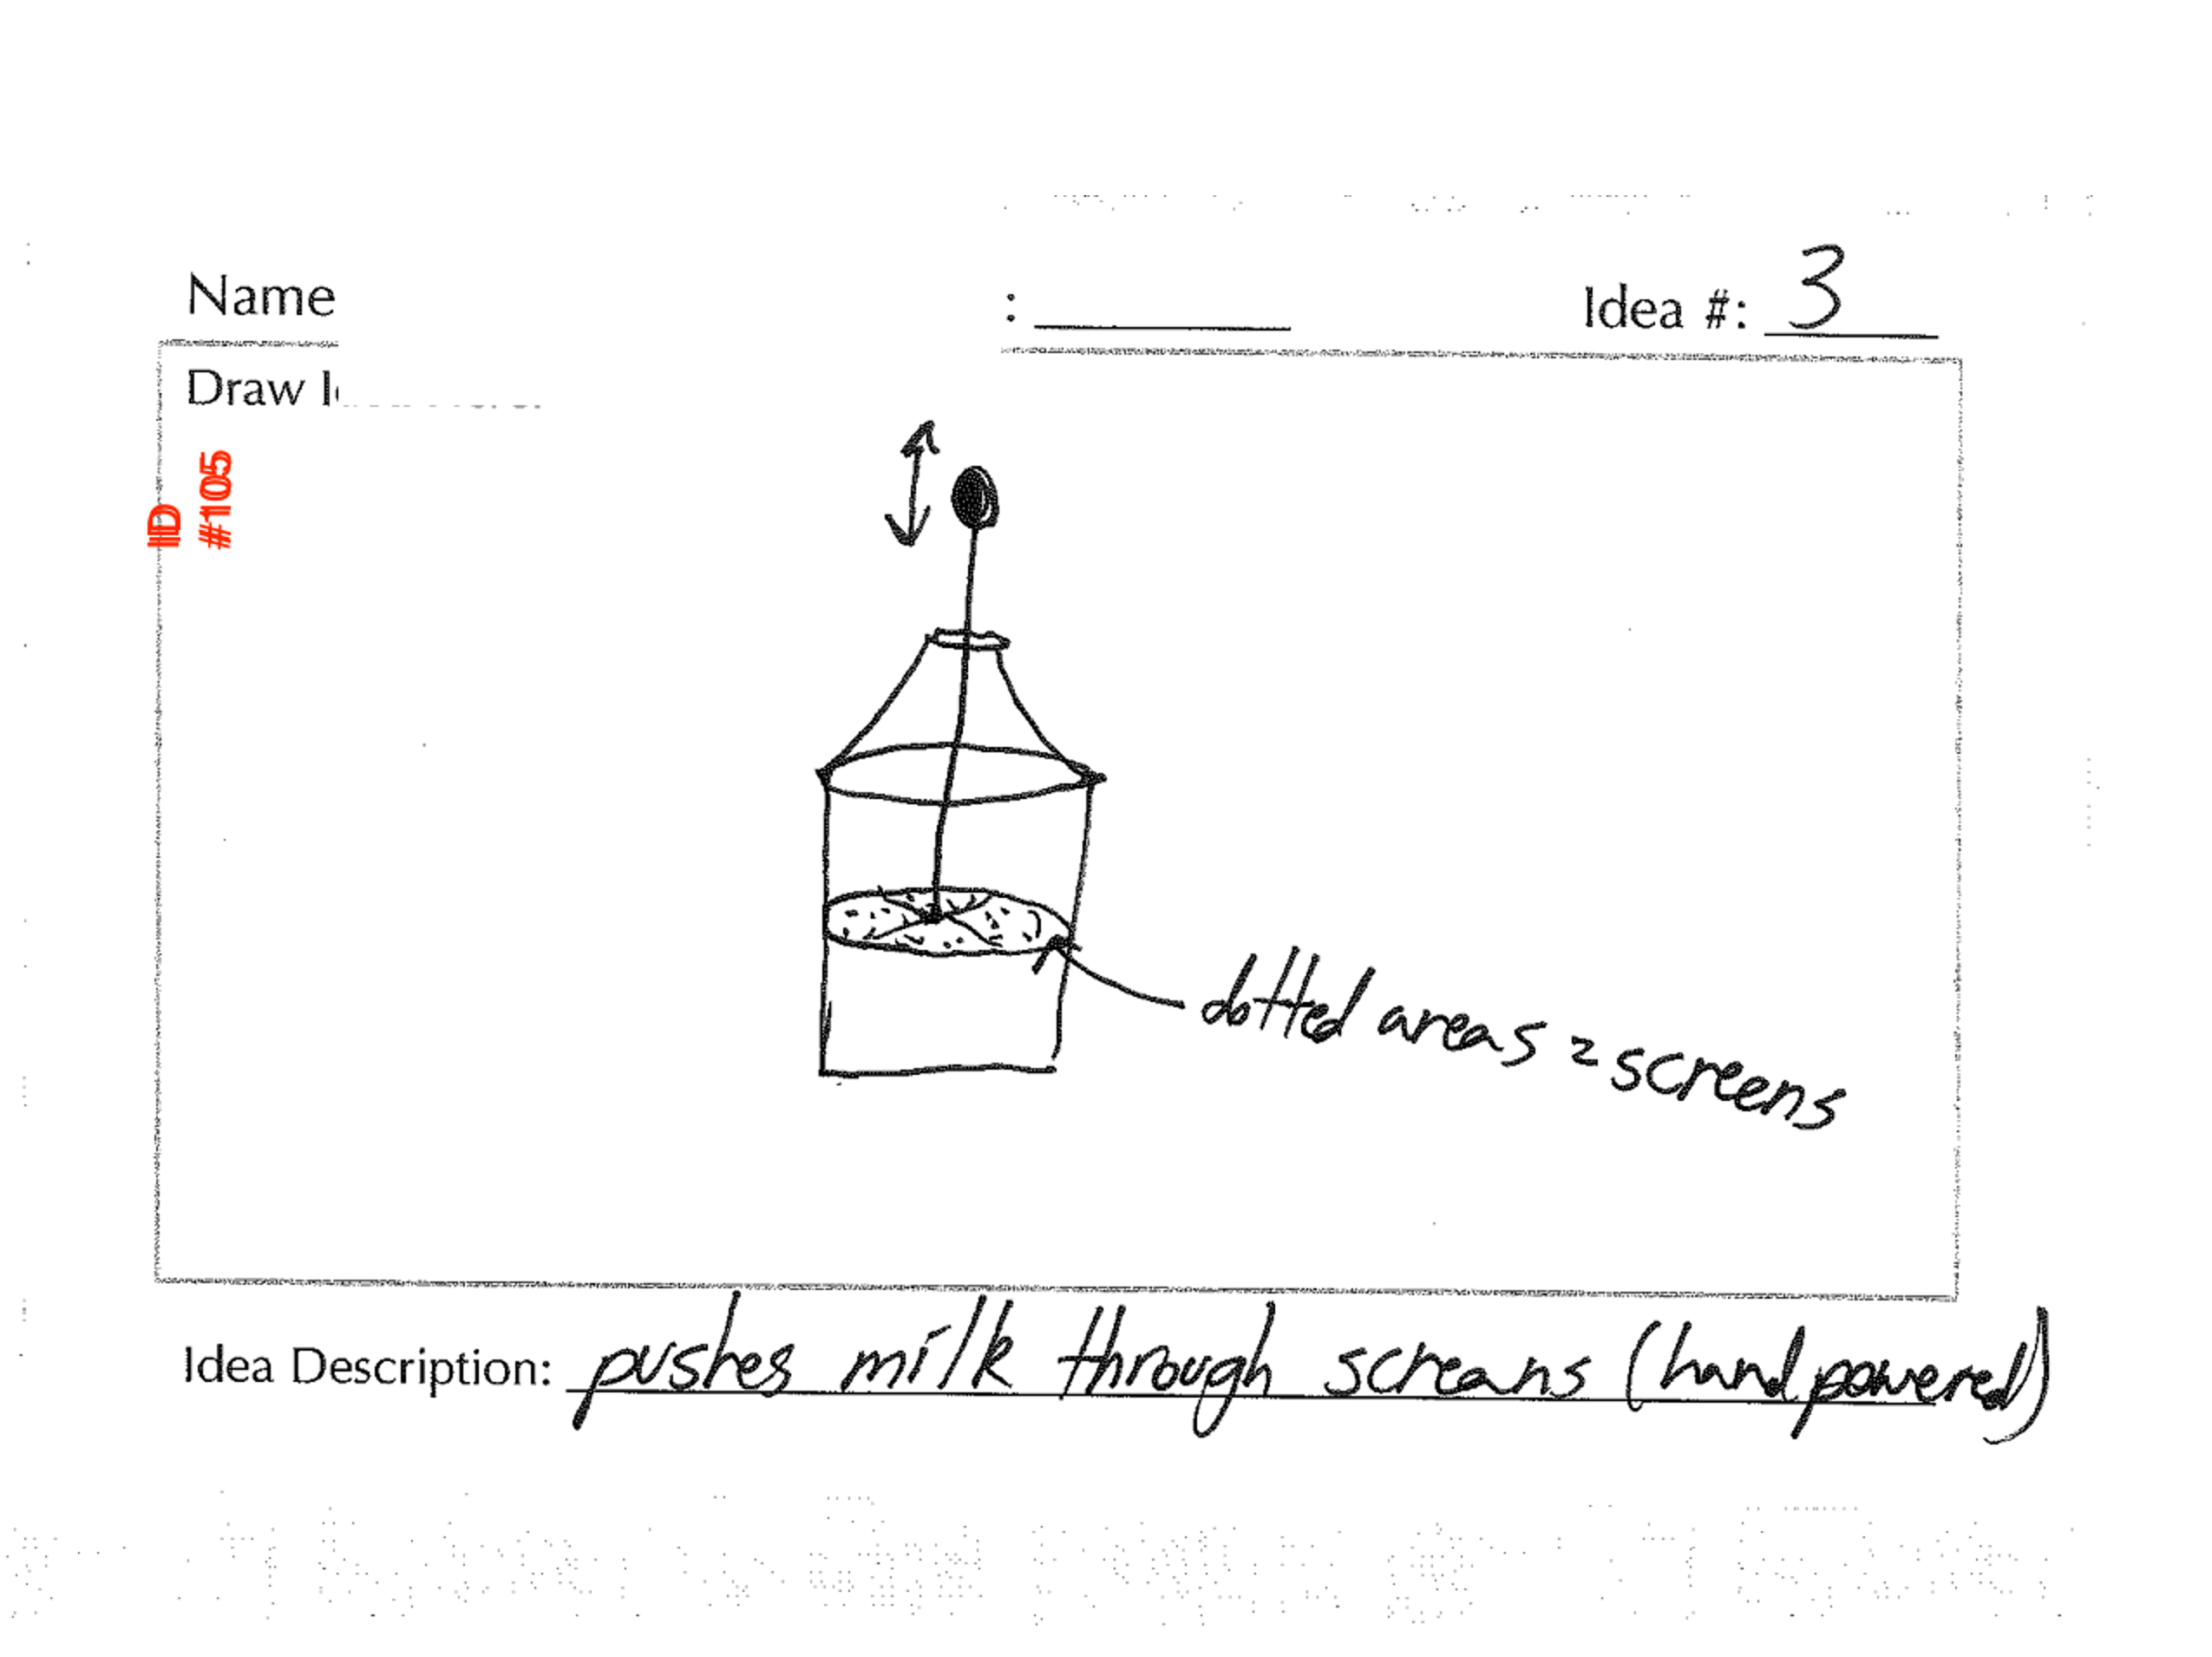 Name : Idea #: 3
Draw I
ID
#105
dotted areas = screens
Idea Description: pushes milk through screans (hand powered)